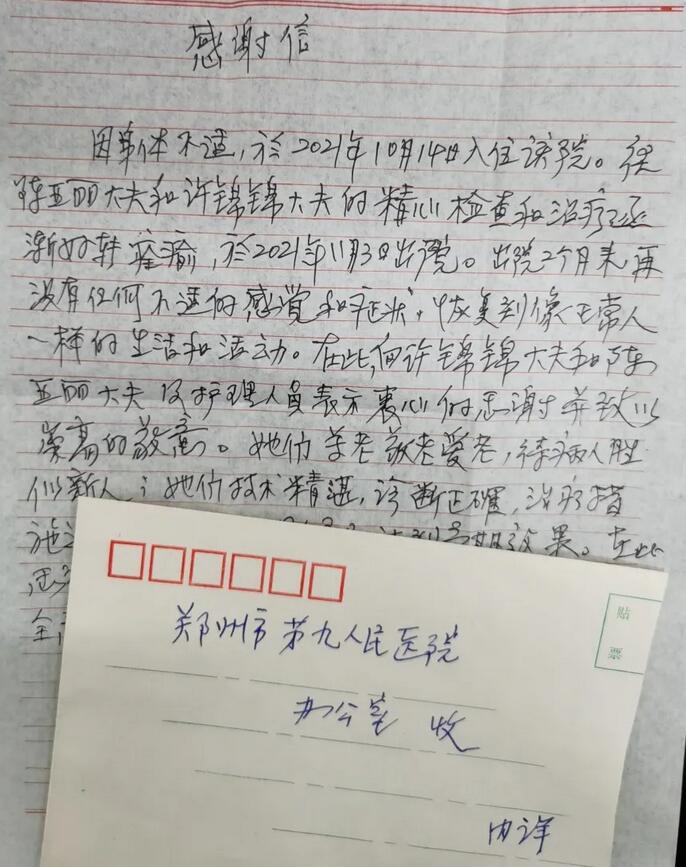 感谢信
因身体不适，于2021年10月14日入住该院。经
陈亚丽大夫和许锦锦大夫的精心检查和治疗逐
渐好转痊愈，于2021年11月3日出院。出院2个月来，再
没有任何不适的感觉和症状，恢复到像正常人
一样的生活和活动。在此，向许锦锦大夫和陈
亚丽大夫及护理人员表示衷心的感谢并致以
崇高的敬意。她们尊老敬老爱老，待病人胜
似亲人；她们技术精湛，诊断正确，治疗措
施 效果。在此
全
贴
票
郑州市第九人民医院
办公室 收
内详